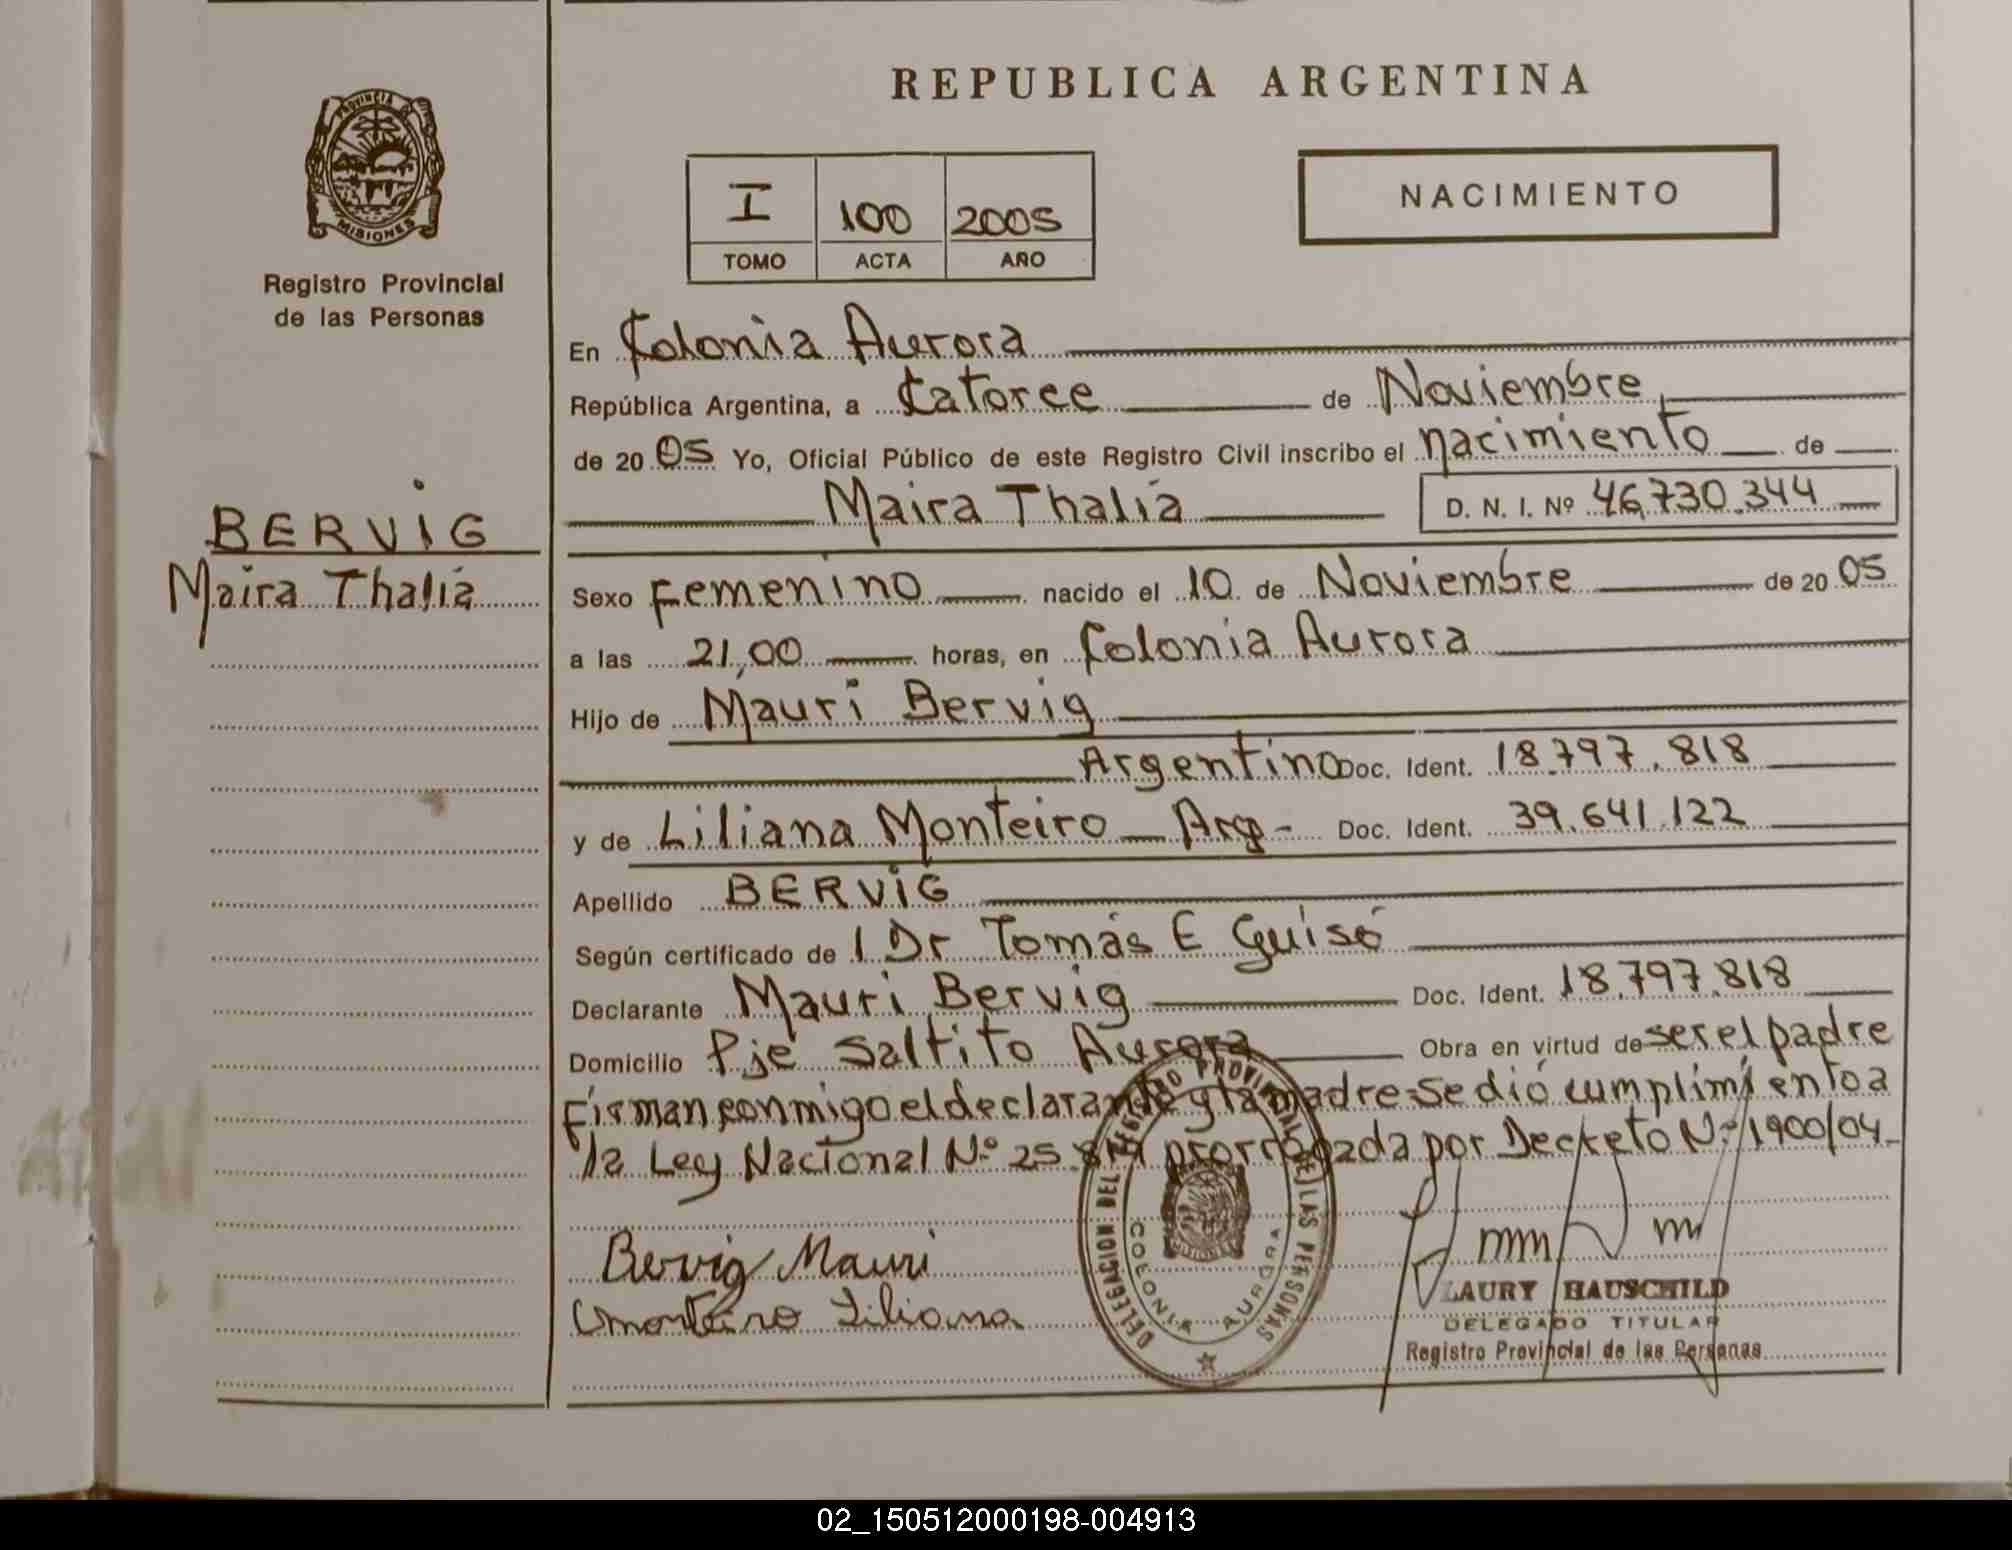 PROVINCIA DE
MISIONES
Registro Provincial
de las Personas
BERVIG
Maira Thalia
REPUBLICA ARGENTINA
I 100 2005
TOMO ACTA AÑO
NACIMIENTO
En Colonia Aurora
República Argentina, a Catorce de Noviembre
de 20 05 Yo, Oficial Público de este Registro Civil inscribo el nacimiento de
Maira Thalia D. N. I. Nº 46,730.344
Sexo Femenino nacido el 10 de Noviembre de 20 05
a las 21,00 horas, en Colonia Aurora
Hijo de Mauri Bervig
Argentino Doc. Ident. 18.797.818
y de Liliana Monteiro Arg- Doc. Ident. 39.641.122
Apellido BERVIG
Según certificado de 1 Dr Tomás E Guisó
Declarante Mauri Bervig Doc. Ident. 18.797.818
Domicilio Pje Saltito Aurora Obra en virtud de ser el padre
Firman conmigo el declarante y la madre-se dió cumplimiento a
la Ley Nacional Nº 25. prorrogada por Decreto Nº 1900/04-
Bervig Mauri
Monteiro Liliana
DELEGACION DEL REGISTRO PROVINCIAL DE LAS PERSONAS
COLONIA AURORA
MISIONES
LAURY HAUSCHILD
DELEGADO TITULAR
Registro Provincial de las Personas
02_150512000198-004913